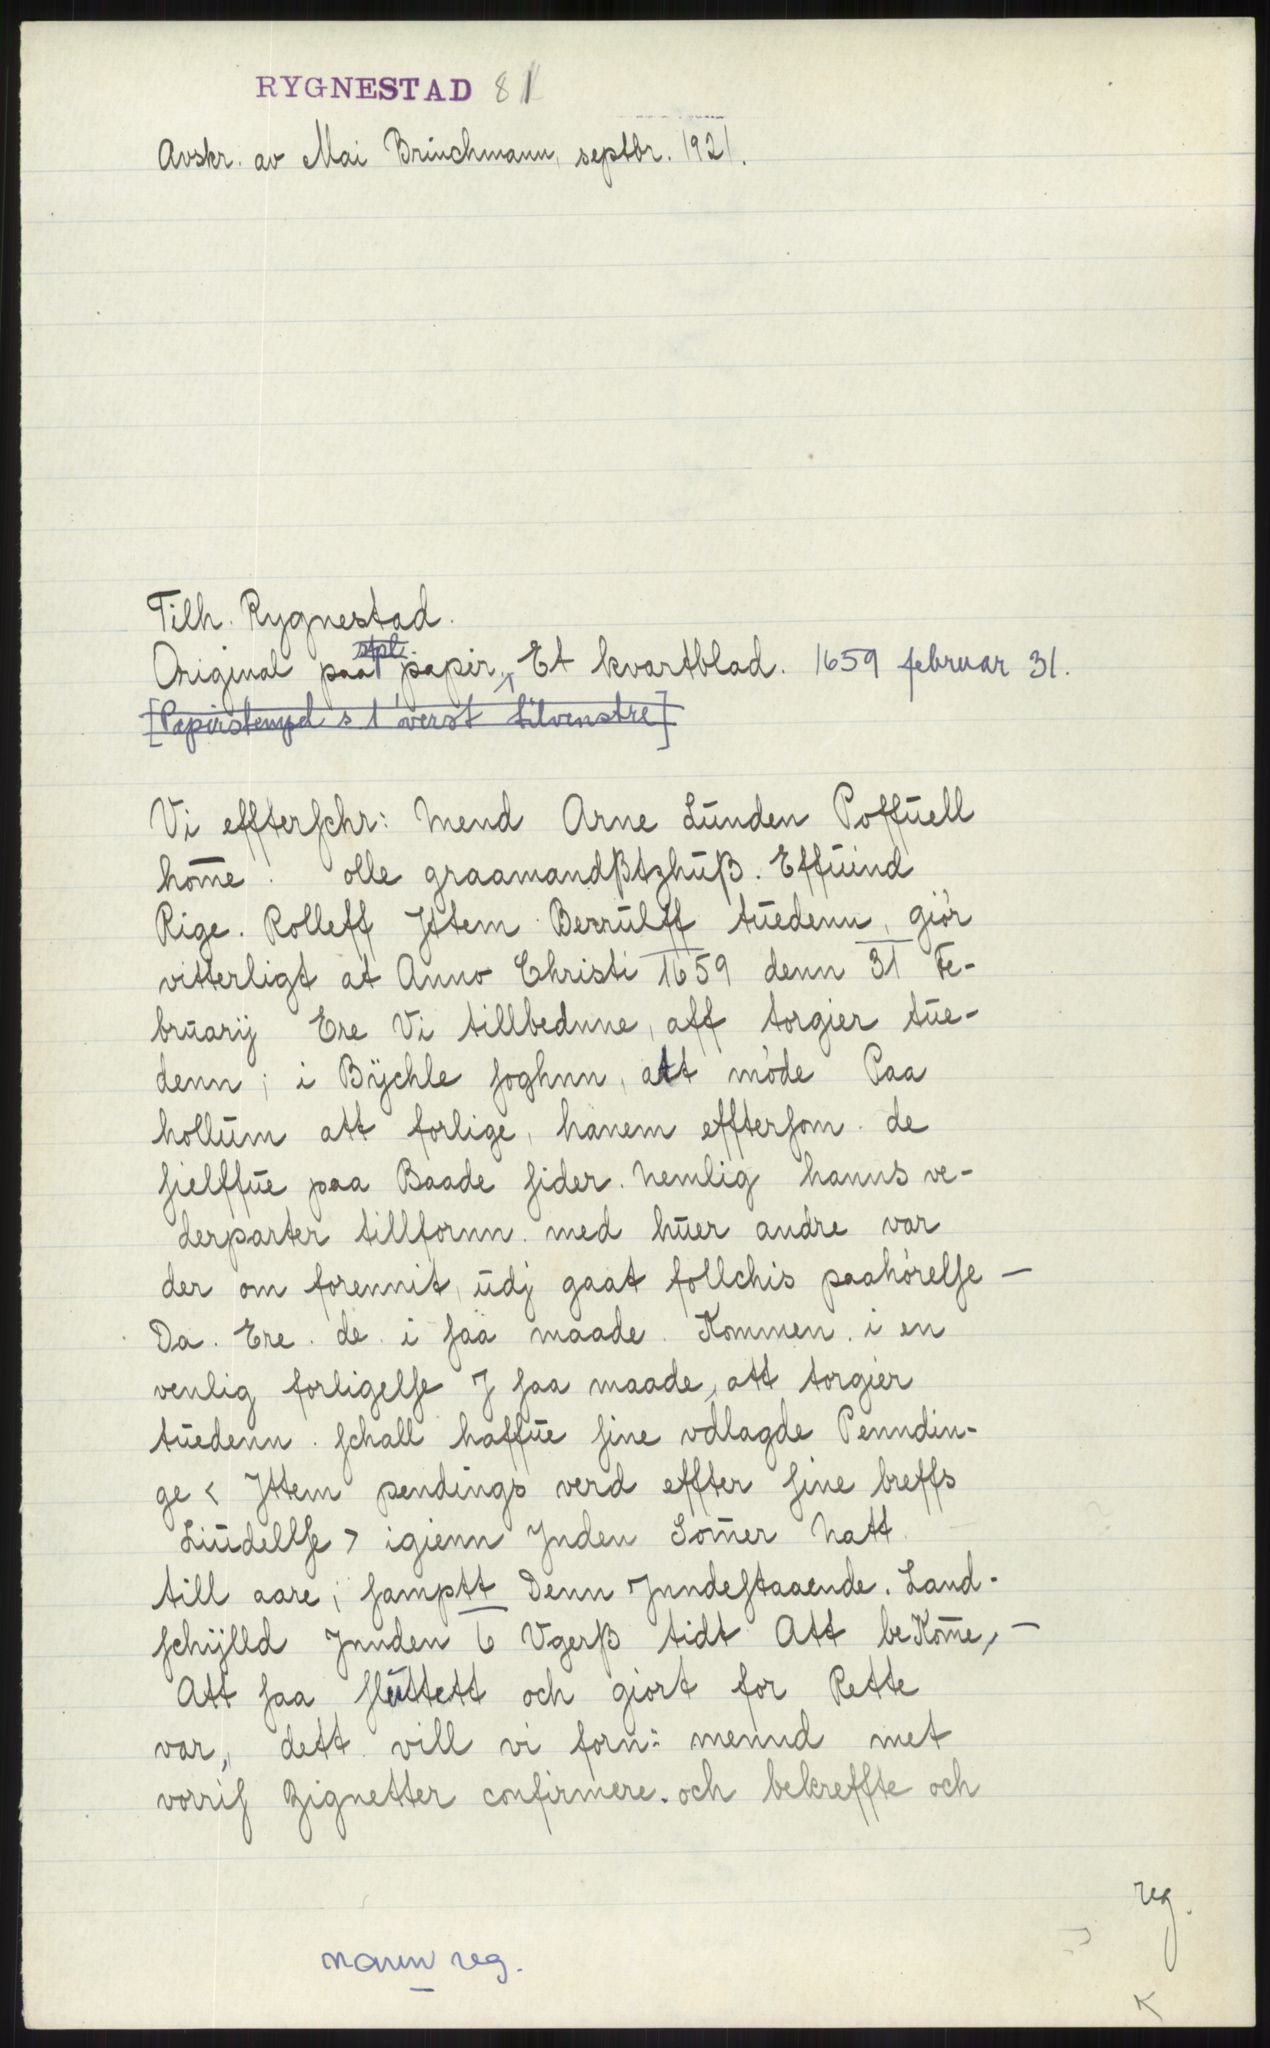 RYGNESTAD 81
Avskr. av Mai Brinchmann, septbr. 1921.
Tilh. Rygnestad.
stpl.
Original paa papir. Et kvartblad. 1659 februar 31.
[Papirstempel s 1 øverst tilvenstre]
Vi effterſchr: Mend Arne Lunden Poffuell
hom̄e. olle graamandßtzhuß. Effuind
Rige. Rolleff Jttem Berrulff tuedenn, giör
vitterligt at Anno Christi 1659 denn 31 Fe-
bruarij Ere Vi tillbednne, aff torgier tue-
denn; i Býchle ſoghnn, att möde Paa
hollum att forlige, hanem effterſom. de
ſielffue paa Baade ſider. Nemlig hanns ve-
derparter tillfornn. med huer andre var
der om forennit, udj gaat follchis paahörelſe —
Da. Ere. de. i ſaa maade. Kommen. i en
venlig forligelſe J ſaa maade, att torgier
tuedenn. ſchall haffue ſine vdlagde Penndin-
ge < Jttem pendings verd effter ſine breffs
Liudellſe > igienn Jnden Som̄er Natt
till aare; ſamptt Denn Jnndeſtaaende. Land-
ſchÿlld Jnnden 6 Vgerß tidt Att beKom̄e, —
Att ſaa ſluttett och giort for Rette
var, dett vill vi forn: mennd met
vorriſ Zignetter confirmere. och bekreffte och
reg.
navn reg.
K